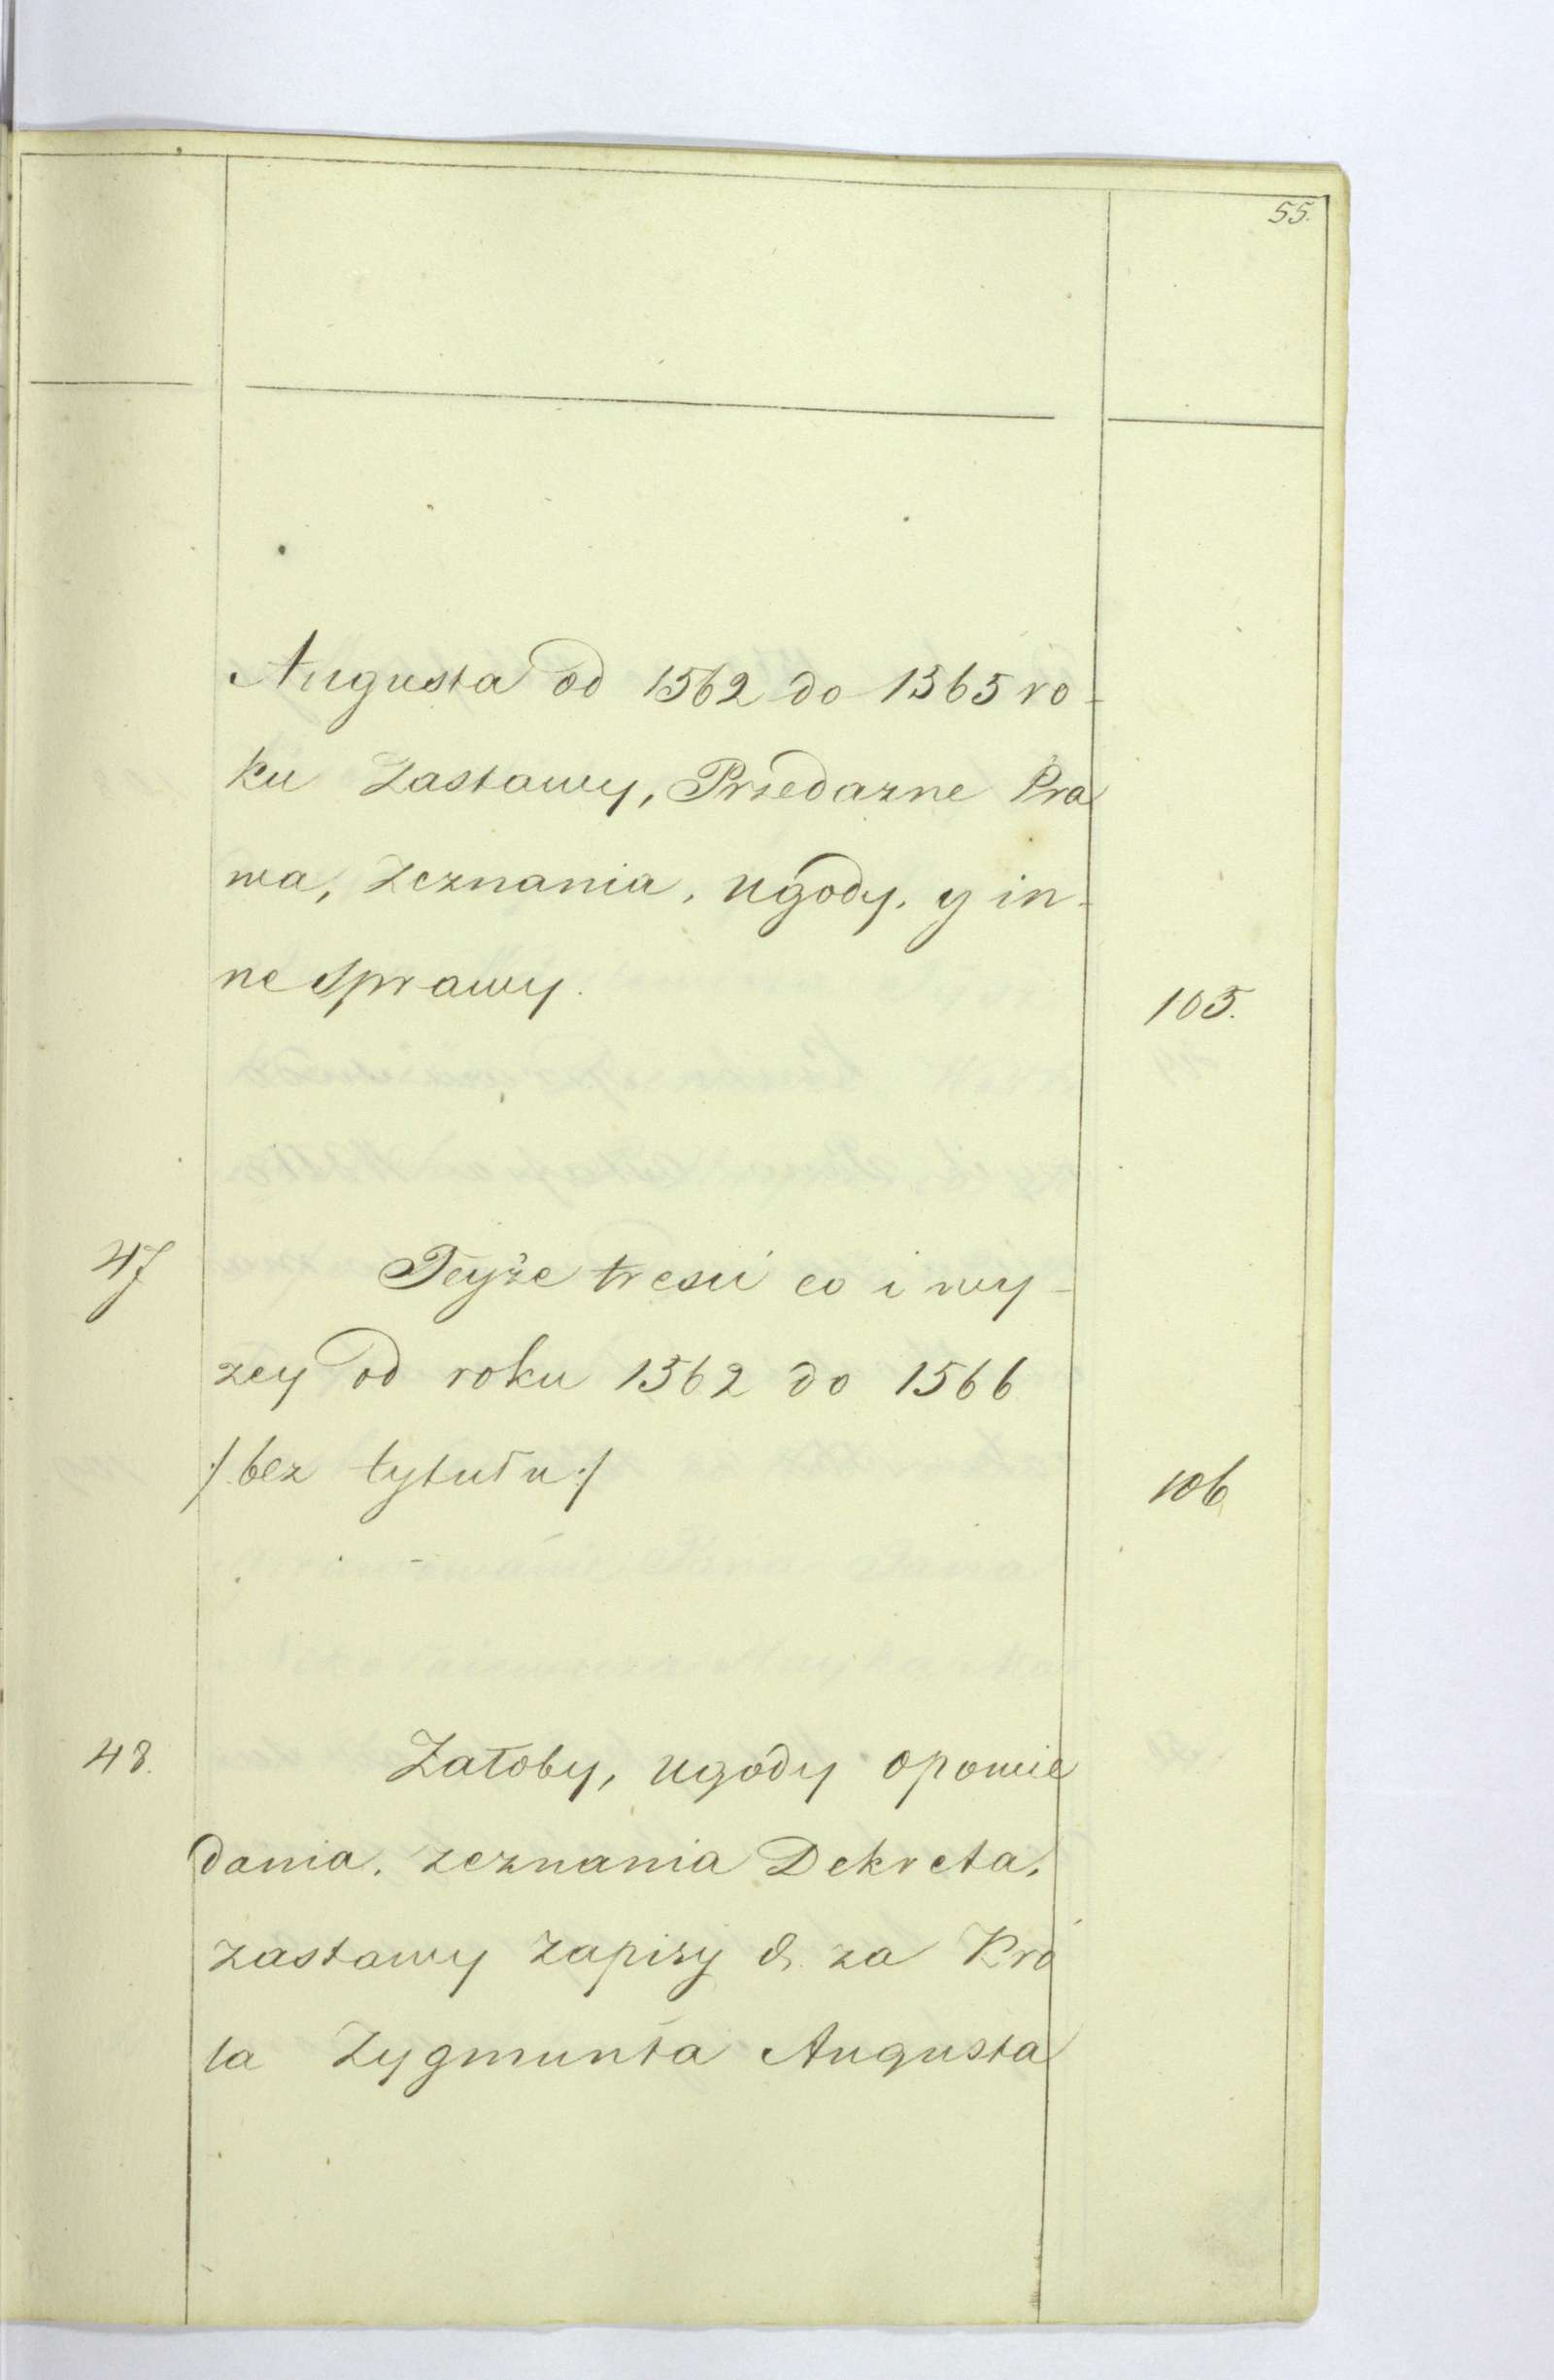 55.
Augusta od 1562 do 1565 ro-
ku Zastawy, Przedazne Pra
wa, zeznania, ugody, y in-
ne Sprawy.
105.
47
Teyże tresci co i wy-
zey od roku 1562 do 1566
/: bez tytułu :/
106
48.
Załoby, ugody opowie
dania, zeznania Dekreta,
zastawy zapisy &. za Kró
la Zygmunta Augusta